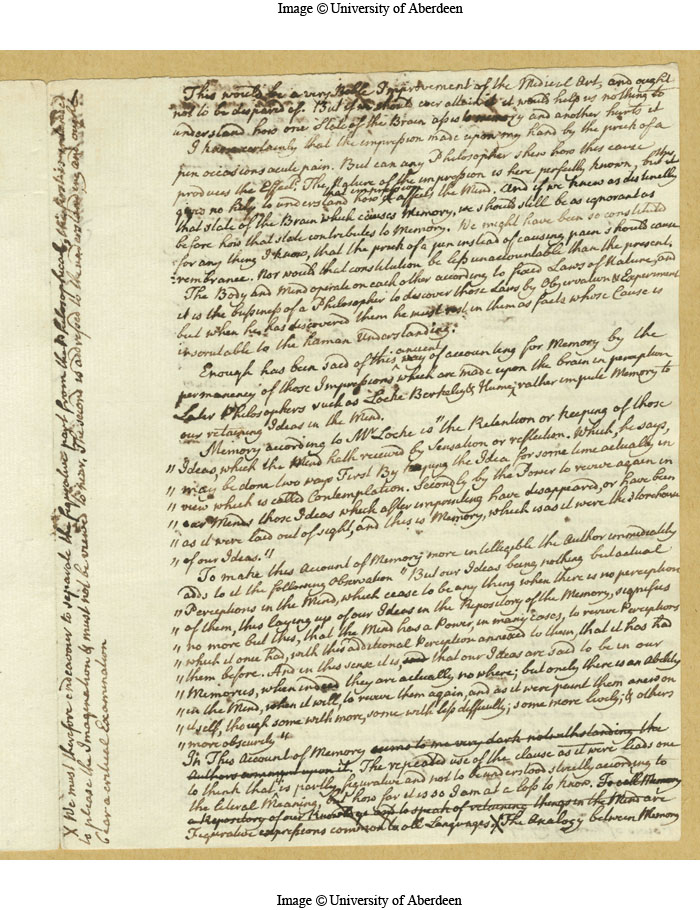 Image © University of Aberdeen
This would be a very Noble Improvement of the Medical Art, and ought
not to be despaired of. But if we should ever attain to it it would help us nothing to
understand how one State of the Brain assists memory and another hurts it
I know certainly that the impression made upon my hand by the prick of a
pin occasions acute pain. But can any Philosopher shew how this cause
produces the Effect; The Nature of the impression is here perfectly known, but it
gives no help to understand how that impression affects the Mind. And if we knew as distinctly
that State of the Brain which causes Memory, we should still be as ignorant as
before how that state contributes to Memory. We might have been so constituted
for any thing I know, that the prick of a pin instead of causing pain should cause
remembrance. Nor would that constitution be less unaccountable than the present.
The Body and Mind operate on each other according to fixed Laws of Nature, and
it is the bussiness of a Philosopher to discover those Laws by Observation & Experiment
but when he has discovered them he must rest in them as facts whose Cause is
inscrutable to the human Understanding.
Enough has been said of this ancient way of accounting for Memory by the
permanency of those Impressions which are made upon the brain in perception
Later Philosophers such as Locke Berkeley & Hume, rather impute Memory to
our retaining Ideas in the Mind.
Memory according to Mr Locke is "the Retention or keeping of those
" Ideas, which the Mind hath received by Sensation or reflection. Which, he says,
" may be done two ways First By keeping the Idea for some time actually in
" view which is called Contemplation. Secondly by the Power to revive again in
" our Minds those Ideas which after imprinting have disappeared, or have been
" as it were laid out of sight, and this is Memory, which is as it were the Storehouse
" of our Ideas."
To make this Account of Memory more intelligible the Author immediately
adds to it the following Observation " But our Ideas being nothing but actual
" Perceptions in the Mind, which cease to be any thing when there is no perception
" of them, this laying up of our Ideas in the Repository of the Memory, signifies
" no more but this, that the Mind has a Power, in many cases, to revive Perceptions
" which it once had, with this additional Perception annexed to them, that it has had
" them before. And in this sense it is, that our Ideas are said to be in our
" Memories, when indeed they are actually no where; but onely there is an Ability
" in the Mind, when it will, to revive them again, and as it were paint them anew on
" it self, though some with more, some with less difficulty; some more lively, & others
" more obscurely"
In This Account of Memory seems to me very dark notwithstanding the
The repeated use of the clause as it were leads one
to think that is partly figurative and not to be understood strictly according to
the literal Meaning, but how far it is so I am at a loss to know. To call Memory
a Repository of our Knowledge and to speak of retaining things in the Mind are
Figurative expressions common to all Languages. X The Analogy between Memory
X We must therefore endeavour to separate the figurative part from the Philosophical, the first is intended
to please the Imagination & must not be viewed too near. The second is addressed to the understanding and ought
to bear a critical Examination
Image © University of Aberdeen